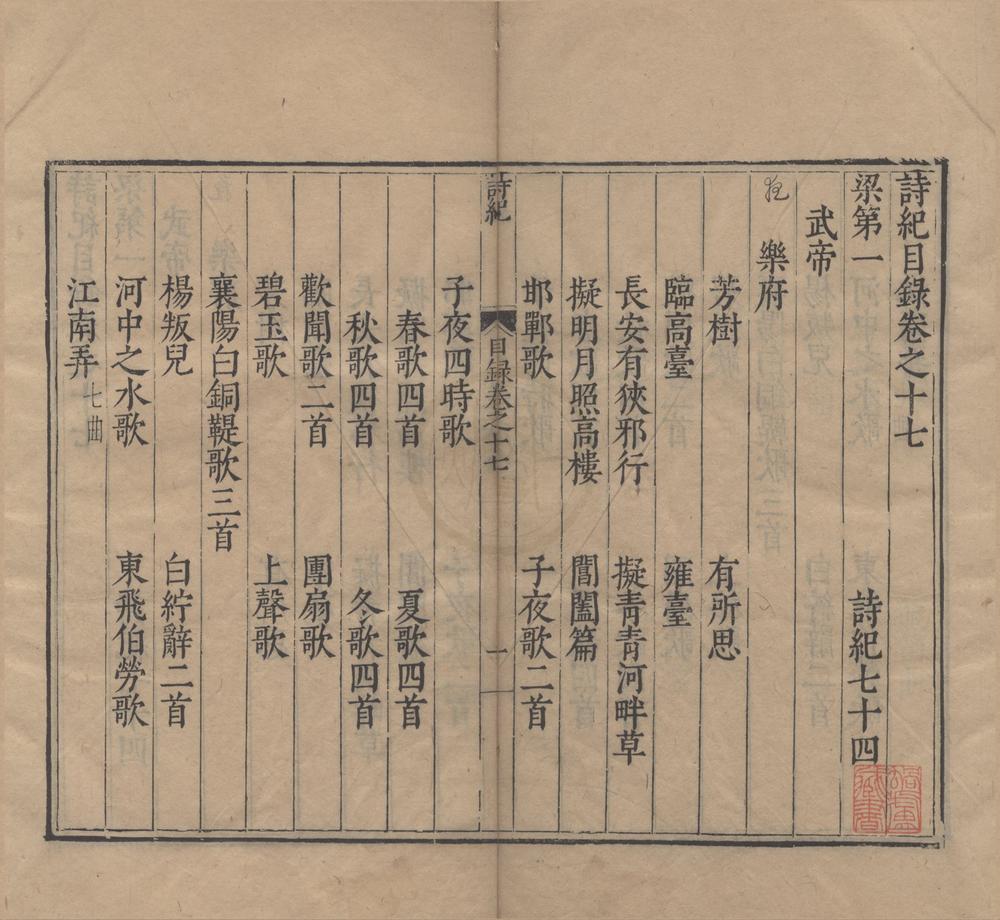 詩紀目錄卷之十七
梁第一　詩紀七十四
武帝
樂府
芳樹　有所思
臨高臺　雍臺
長安有狹邪行　擬青青河畔草
擬明月照高樓　閶闔篇
邯鄲歌　子夜歌二首
詩紀　目録卷之十七　一
子夜四時歌
春歌四首　夏歌四首
秋歌四首　冬歌四首
歡聞歌二首　團扇歌
碧玉歌　上聲歌
襄陽白銅鞮歌三首
楊叛兒　白紵辭二首
河中之水歌　東飛伯勞歌
江南弄七曲